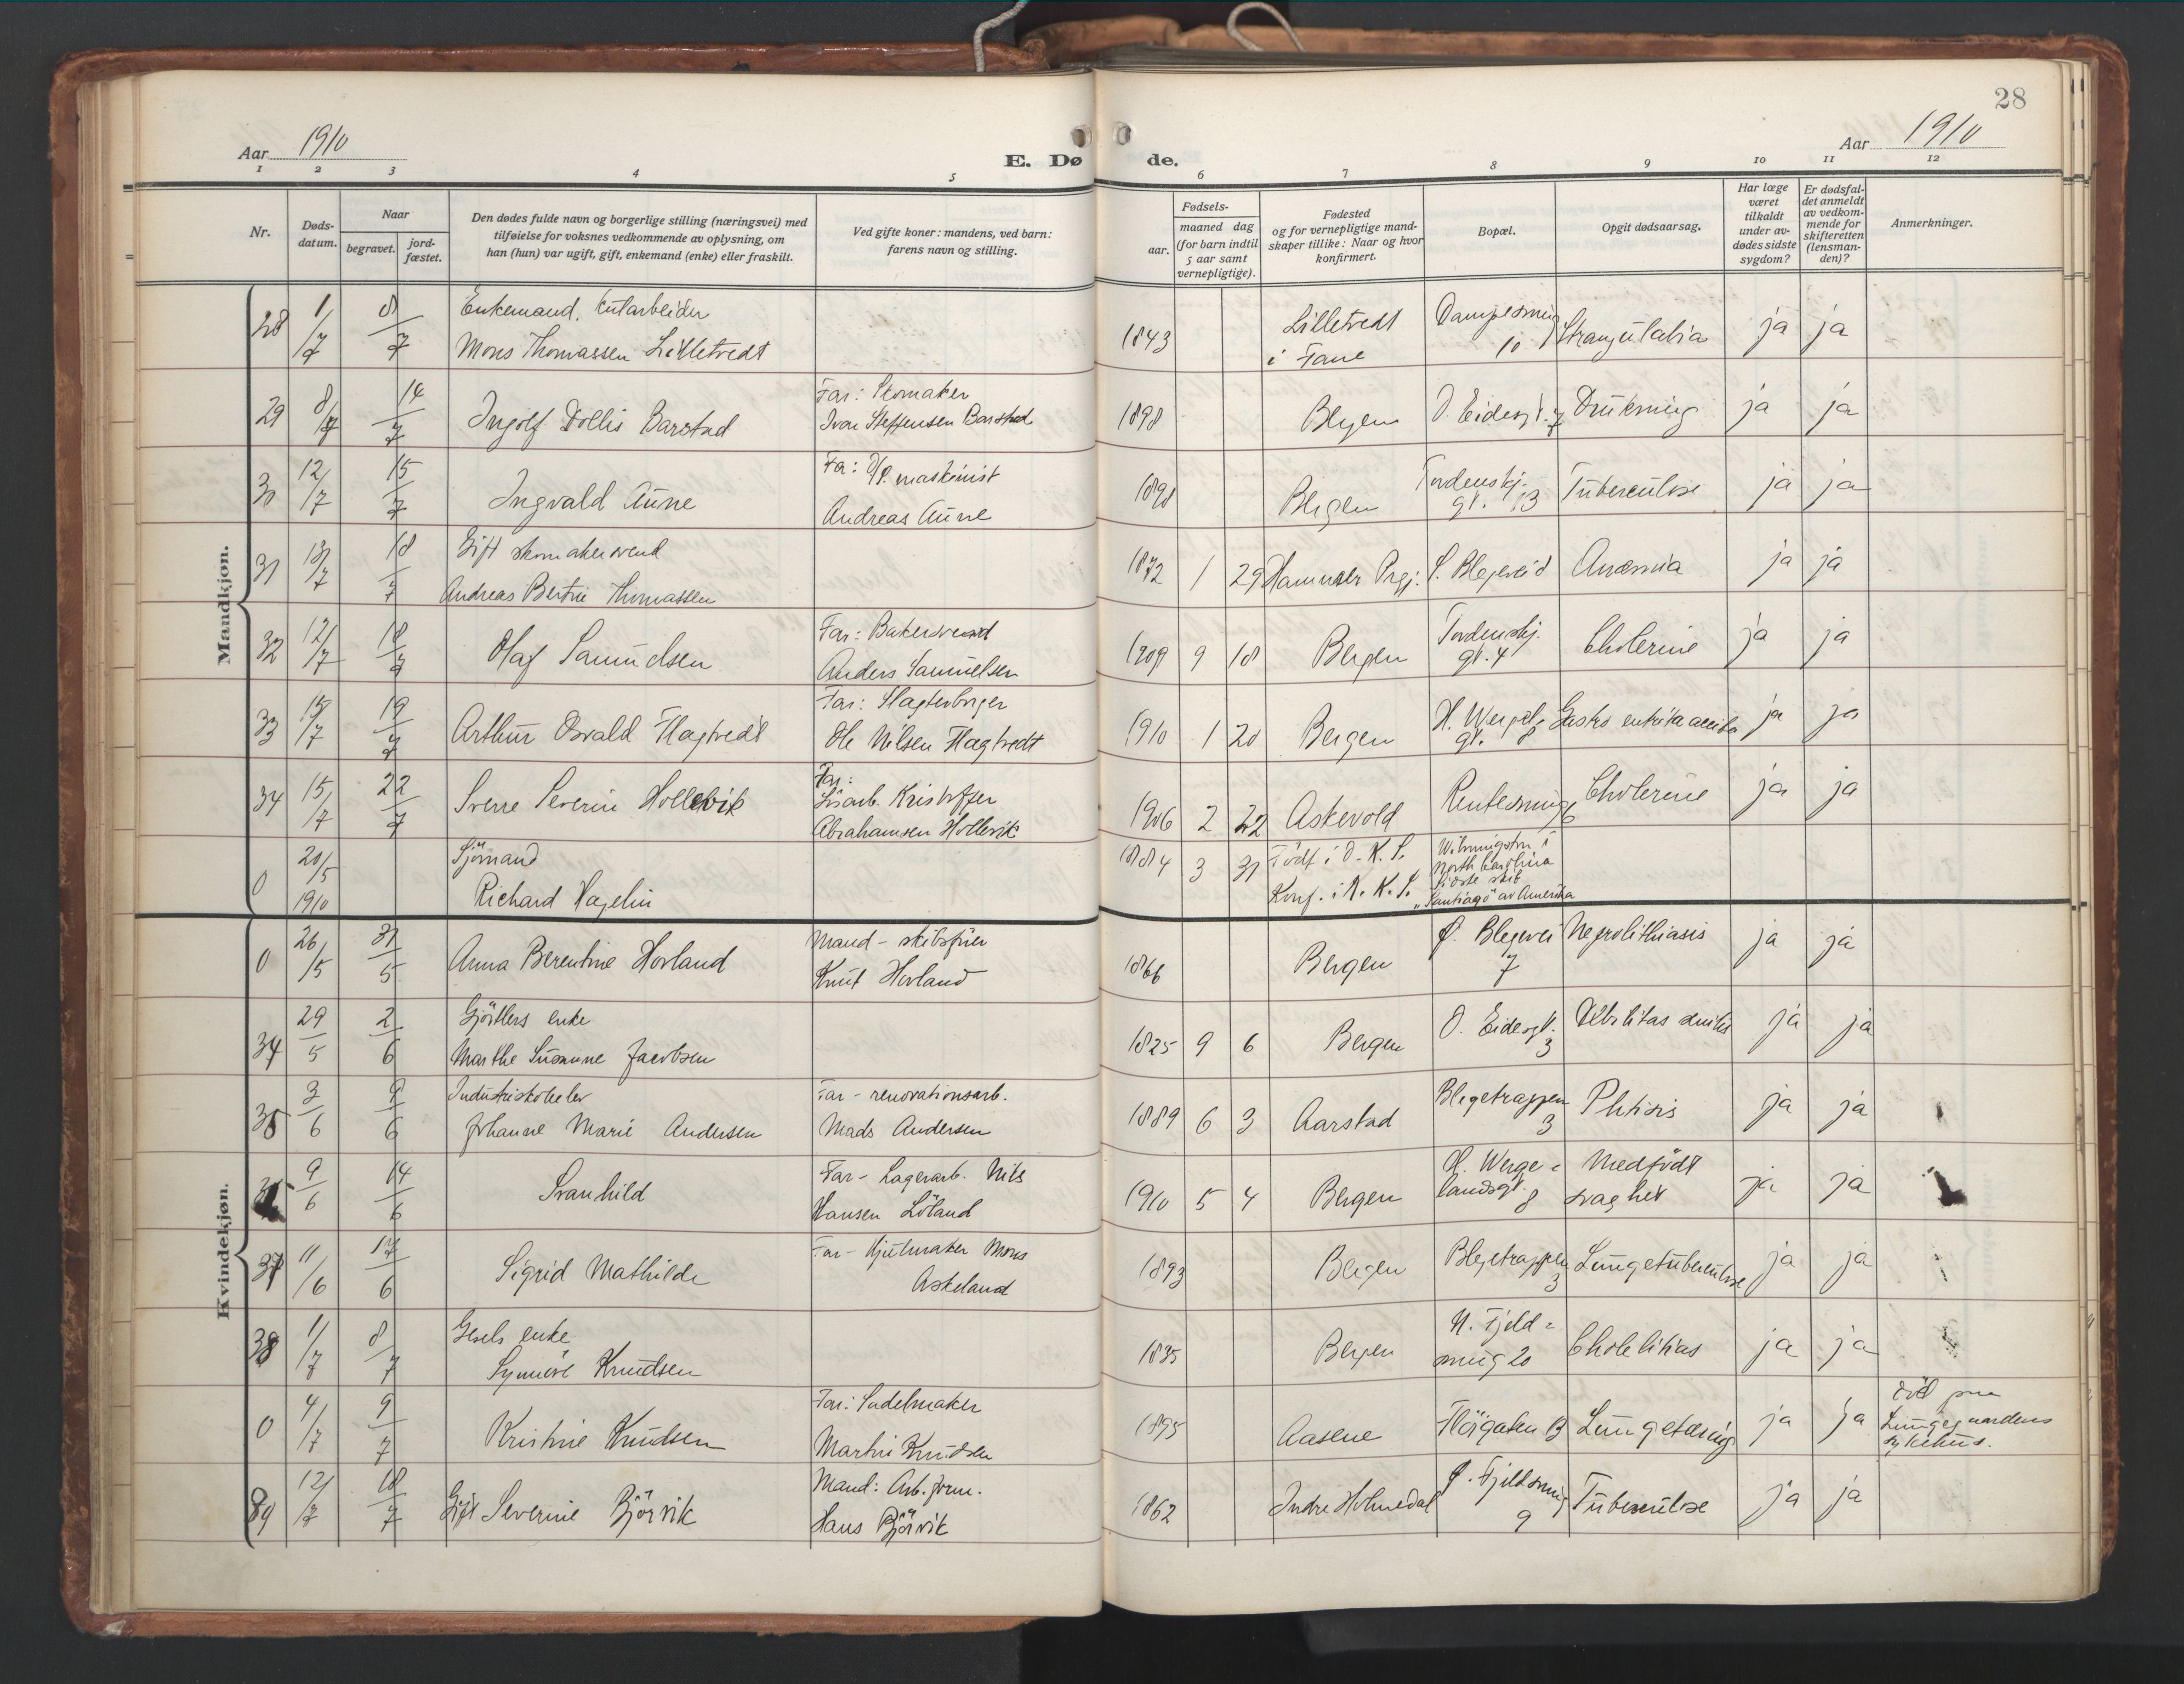 28
Aar 1910
E. Dø
de.
Aar 1910
1 2 3 4 5 6 7 8 9 10 11 12
Nr.
Døds-
datum.
Naar
begravet.
jord-
fæstet.
Den dødes fulde navn og borgerlige stilling (næringsvei) med
tilføielse for voksnes vedkommende av oplysning, om
han (hun) var ugift, gift, enkemand (enke) eller fraskilt.
Ved gifte koner: mandens, ved barn:
farens navn og stilling.
Fødsels-
aar.
maaned dag
(for barn indtil
5 aar samt
vernepligtige).
Fødested
og for vernepligtige mand-
skaper tillike: Naar og hvor
konfirmert.
Bopæl.
Opgit dødsaarsag.
Har læge
været
tilkaldt
under av-
dødes sidste
sygdom?
Er dødsfal-
det anmeldt
av vedkom-
mende for
skifteretten
(lensman-
den)?
Anmerkninger.
Mandkjøn.
28 1/7 8/7 Enkemand.
Mons Thomassen Lilletvedt
1843 Lilletvedt
i Fane
10 ja ja
29 8/7 14/7 Ingolf Dollis Barstad
Far: Skomaker
Ivar Steffensen Barstad
1898 Bergen Ø. Eidesgt. 7 Drukning ja ja
30 12/7 15/7 Ingvald Aüne
Fa: D/P. maskinist
Andreas Aüne
1898 Bergen Tordenskj.
gt. 13 Tüberculose ja ja
31 13/7 18/7 Gift skomakersvend
Andreas Bertin Thomassen
1872 1 29 Hammer Prgj. Anæmia ja ja
32 12/7 18/7 Olaf Samuelsen
Far: Bakersvend
Anders Samuelsen
1909 9 18 Bergen Tordenskj.
gt. 4 Cholerine ja ja
33 15/7 19/7 Arthur Osvald Flagtvedt
Far: Slagterborger
Ole Nilsen Flagtvedt
1910 1 20 Bergen H. Wergel.
gt. 8 Gastro ja ja
34 15/7 22/7 Sverre Severin Hollevik
Far:
Kristoffer
Abrahamsen Hollevik
1906 2 22 Askevold 6 Cholerine ja ja
0 20/5 1910 Sjömand
Richard Hagelin
1884 3 31 Födt i D. K. S.
Konf. i N. K. S.
Wilmington i
North Carolina
sidste skib
"Santiago" av Amerika
Kvindekjøn.
0 26/5 31/5 Anna Berentine Hovland
Mand - skibsfüer
Knut Hovland
1866 Bergen 7 Neprolithiasis ja ja
34 29/5 2/6 Gjörtlers enke
Marthe Susanne Jacobsen
1825 9 6 Bergen Ø. Eidesgt.
3 Debilitas senilis ja ja
35 3/6 9/6 Industriskoleelev
Johanne Marie Andersen
Far - renovationsarb.
Mads Andersen
1889 6 3 Aarstad Blegetrappen
3 Phtisis ja ja
9/6 14/6 Svanhild
Far - Lagerarb. Nils
Hansen Löland
1910 5 4 Bergen H. Werge=
landsgt. 8 Medfödt
svaghet ja ja
37 11/6 17/6 Sigrid Mathilde
Far - Hjulmaker Mons
Askeland
1893 Bergen Blegetrappen
3 Lungetüberculose ja ja
38 1/7 8/7 Gesels enke
Synnöve Knudsen
1835 Bergen N. Fjeld=
smug 20 Cholelitias ja ja
0 4/7 9/7 Kristine Knudsen
Far: Sadelmaker
Martin Knudsen
1895 Aasene Flöigaten Lungetæring ja ja
död paa
Lungegaardens
sykehus.
39 12/7 18/7 Gift Severine Björvik
Mand: Arb. form.
Hans Björvik
1862 Indre Holmedal Ø. Fjeldsmug
9 Tüberculose ja ja